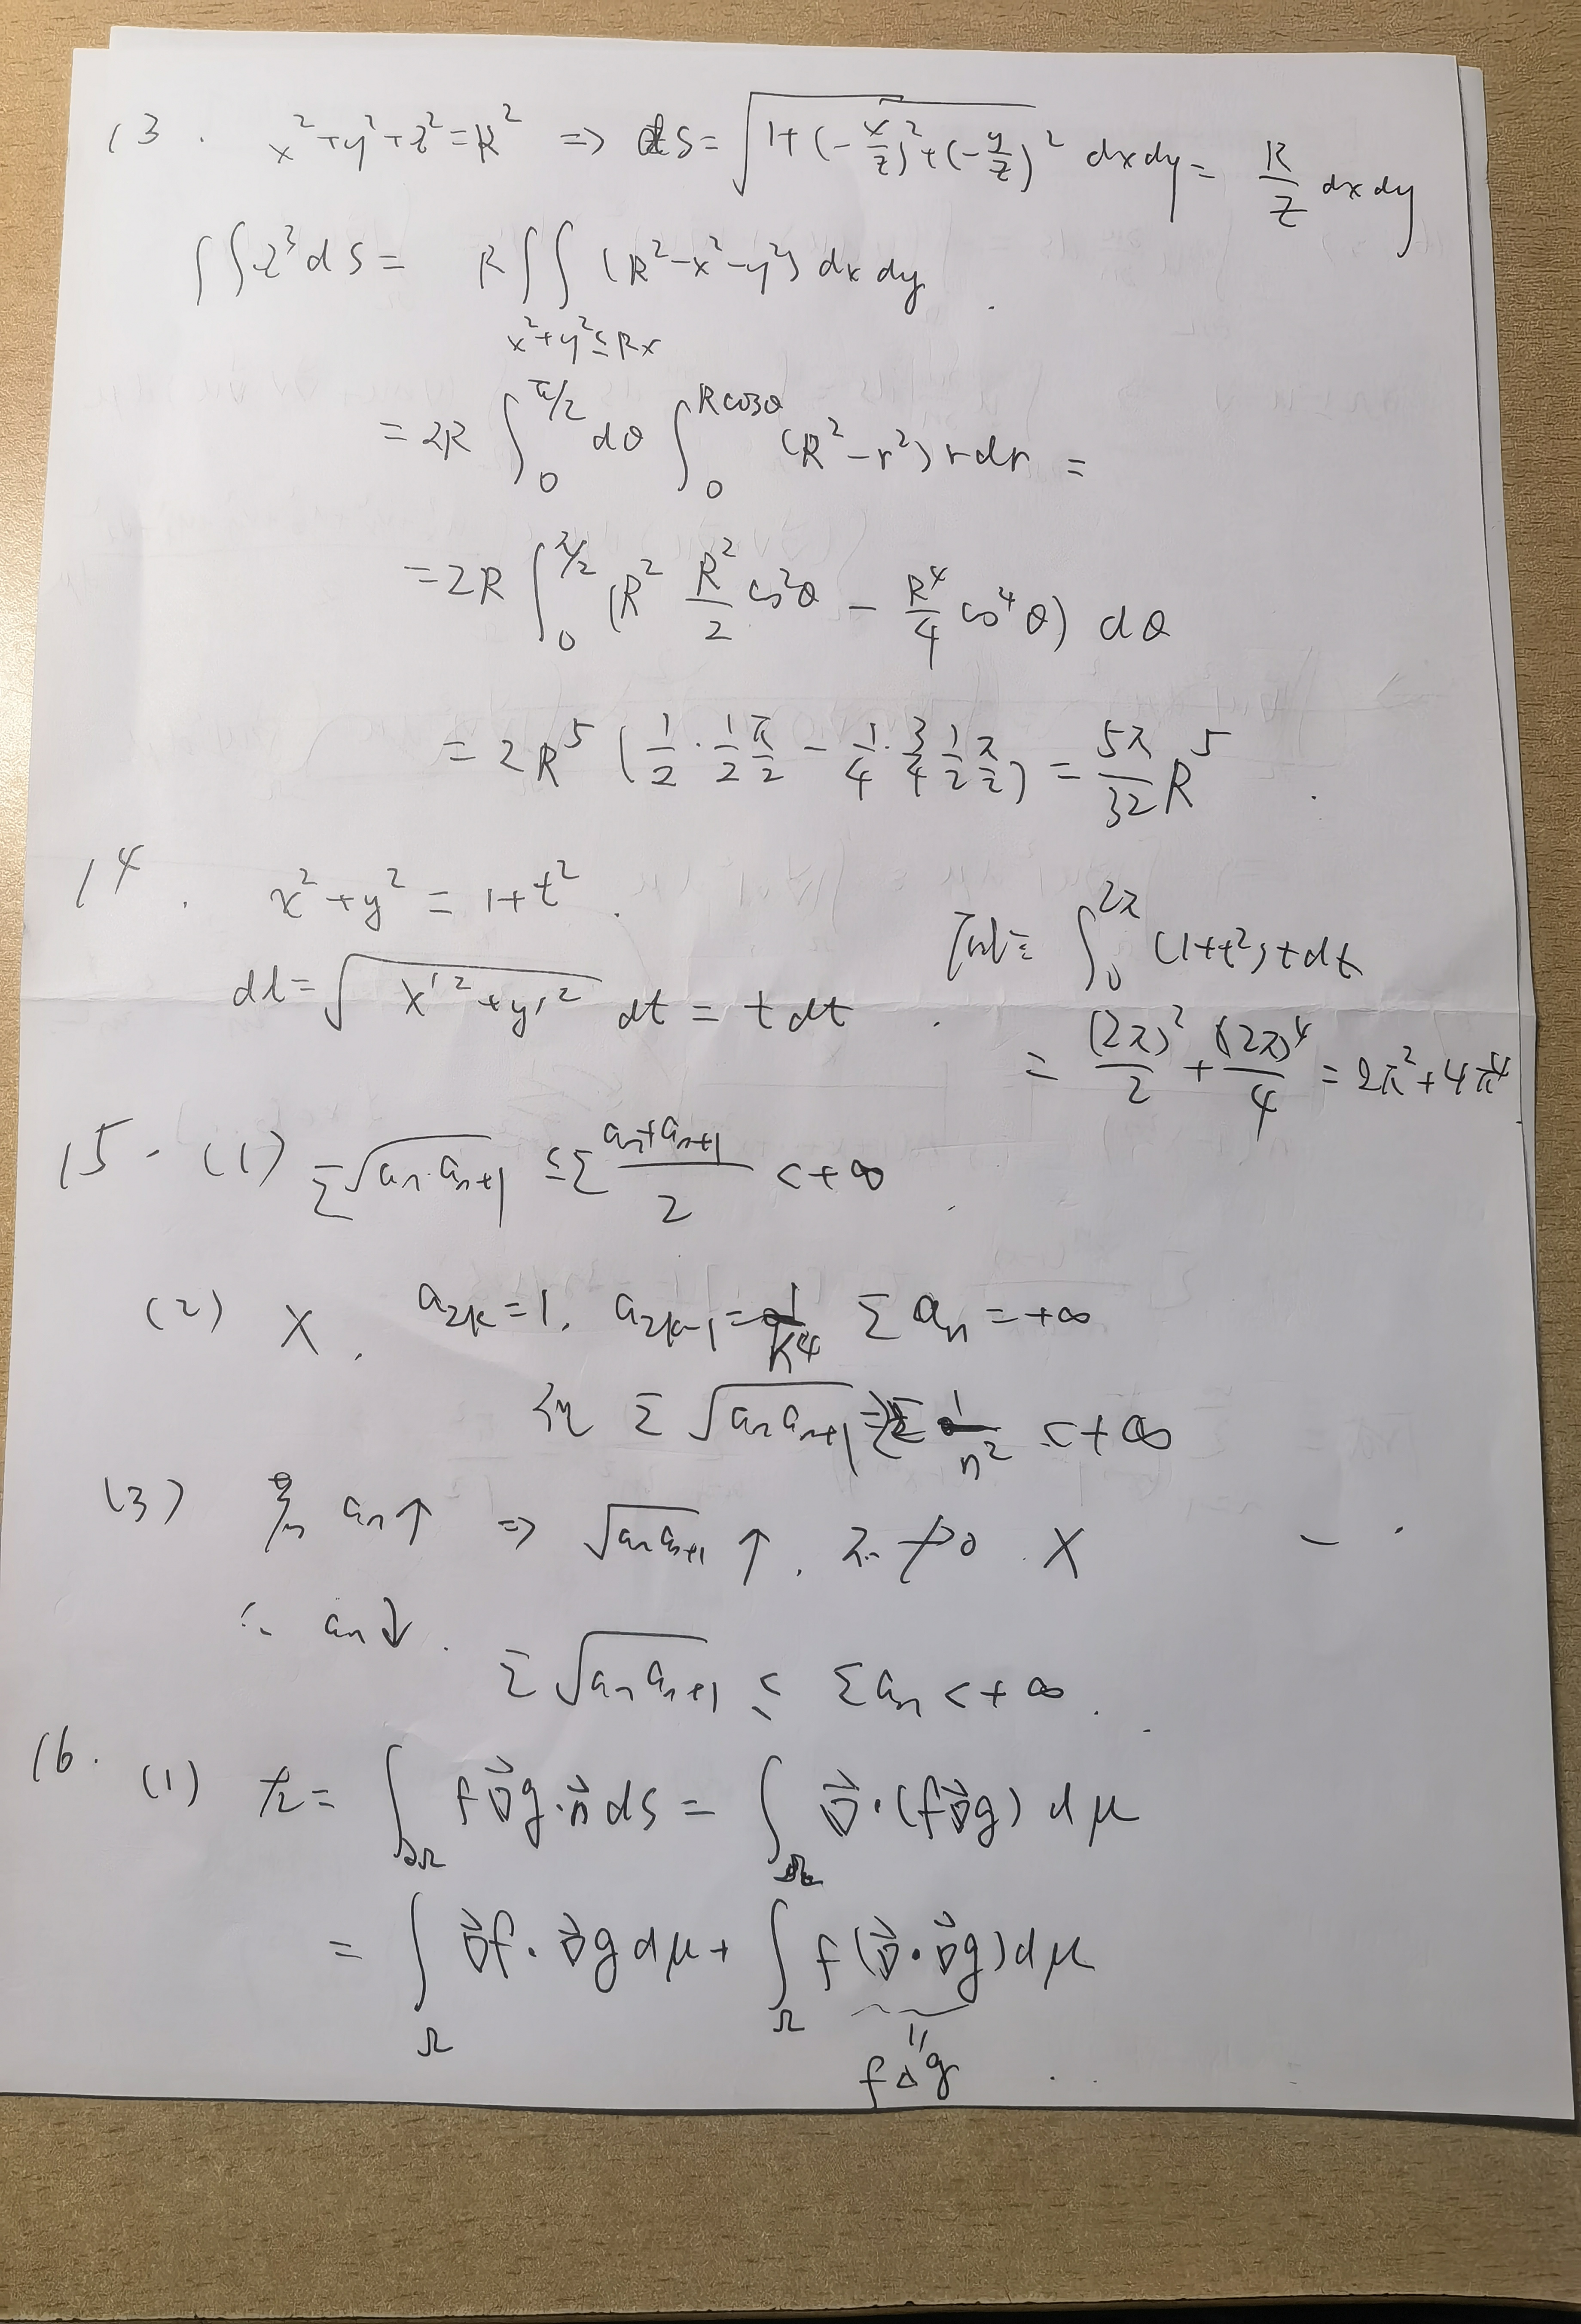 13. x²+y²+z²=R² ⇒ dS=√(1+(-x/z)²+(-y/z)²) dxdy= R/z dxdy
∫∫z³dS= R∫∫(R²-x²-y²)dxdy
x²+y²≤Rx
=2R ∫₀^{π/2} dθ ∫₀^{Rcosθ} (R²-r²)rdr =
=2R ∫₀^{π/2} (R² R²/2 cos²θ - R⁴/4 cos⁴θ) dθ
=2R⁵ (1/2·1/2 π/2 - 1/4·3/4 1/2 π/2) = 5π/32 R⁵
14. x²+y²=1+t².
dl=√(x'²+y'²) dt = tdt.
∫₀^{2π} (1+t²)tdt
= (2π)²/2 + (2π)⁴/4 = 2π²+4π⁴
15. (1) Σ√(aₙ·aₙ₊₁) ≤Σ (aₙ+aₙ₊₁)/2 <+∞
(2) X. a₂ₖ=1, a₂ₖ₋₁=1/k⁴ Σaₙ=+∞
Σ√(aₙaₙ₊₁) 1/n² <+∞
(3) aₙ↑ ⇒ √(aₙaₙ₊₁)↑. ↛0 X
∴ aₙ↓.
Σ√(aₙaₙ₊₁) ≤ Σaₙ<+∞.
16. (1) 左= ∫_{∂Ω} f∇⃗g·n⃗ds= ∫_Ω ∇⃗·(f∇⃗g)dμ
= ∫_Ω ∇⃗f·∇⃗gdμ+ ∫_Ω f(∇⃗·∇⃗g)dμ
fΔg